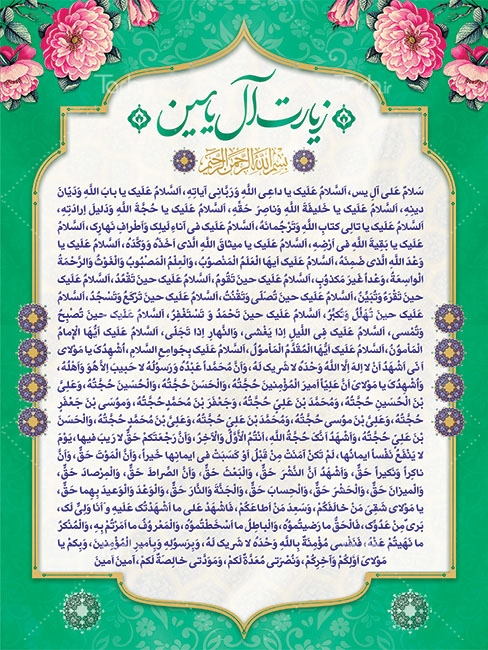 زیارت آل یاسین
بسم الله الرحمن الرحیم
سَلامٌ عَلى آلِ یس، اَلسَّلامُ عَلَیْکَ یا داعِىَ اللَّهِ وَرَبَّانِىَّ آیاتِهِ، اَلسَّلامُ عَلَیْکَ یا بابَ اللَّهِ وَدَیَّانَ
دینِهِ، اَلسَّلامُ عَلَیْکَ یا خَلیفَةَ اللَّهِ وَناصِرَ حَقِّهِ، اَلسَّلامُ عَلَیْکَ یا حُجَّةَ اللَّهِ وَدَلیلَ اِرادَتِهِ،
اَلسَّلامُ عَلَیْکَ یا تالِىَ کِتابِ اللَّهِ وَتَرْجُمانَهُ، اَلسَّلامُ عَلَیْکَ فى آناءِ لَیْلِکَ وَاَطْرافِ نَهارِکَ، اَلسَّلامُ
عَلَیْکَ یا بَقِیَّةَ اللَّهِ فى اَرْضِهِ، اَلسَّلامُ عَلَیْکَ یا میثاقَ اللَّهِ الَّذى اَخَذَهُ وَوَکَّدَهُ، اَلسَّلامُ عَلَیْکَ یا
وَعْدَ اللَّهِ الَّذى ضَمِنَهُ، اَلسَّلامُ عَلَیْکَ اَیُّهَا الْعَلَمُ الْمَنْصُوبُ، وَالْعِلْمُ الْمَصْبُوبُ وَالْغَوْثُ وَالرَّحْمَةُ
الْواسِعَةُ، وَعْداً غَیْرَ مَکْذوُبٍ، اَلسَّلامُ عَلَیْکَ حینَ تَقوُمُ، اَلسَّلامُ عَلَیْکَ حینَ تَقْعُدُ، اَلسَّلامُ عَلَیْکَ
حینَ تَقْرَءُ وَتُبَیِّنُ، اَلسَّلامُ عَلَیْکَ حینَ تُصَلّى وَتَقْنُتُ، اَلسَّلامُ عَلَیْکَ حینَ تَرْکَعُ وَتَسْجُدُ، اَلسَّلامُ
عَلَیْکَ حینَ تُهَلِّلُ وَتُکَبِّرُ، اَلسَّلامُ عَلَیْکَ حینَ تَحْمَدُ وَ تَسْتَغْفِرُ، اَلسَّلامُ عَلَیْکَ حینَ تُصْبِحُ
وَتُمْسى، اَلسَّلامُ عَلَیْکَ فِى اللَّیْلِ اِذا یَغْشى، وَالنَّهارِ اِذا تَجَلّى، اَلسَّلامُ عَلَیْکَ اَیُّهَا الْاِمامُ
الْمَاْموُنُ، اَلسَّلامُ عَلَیْکَ اَیُّهَا الْمُقَدَّمُ الْمَاْموُلُ، اَلسَّلامُ عَلَیْکَ بِجَوامِعِ السَّلامِ، اُشْهِدُکَ یا مَوْلاىَ
اَنّى اَشْهَدُ اَنْ لا اِلهَ اِلَّا اللَّهُ وَحْدَهُ لا شَریکَ لَهُ، وَاَنَّ مُحَمَّداً عَبْدُهُ وَرَسوُلُهُ لا حَبیبَ اِلَّا هُوَ وَاَهْلُهُ،
وَاُشْهِدُکَ یا مَوْلاىَ اَنَّ عَلِیّاً اَمیرَ الْمُؤْمِنینَ حُجَّتُهُ، وَالْحَسَنَ حُجَّتُهُ، وَالْحُسَیْنَ حُجَّتُهُ، وَعَلِىَّ
بْنَ الْحُسَیْنِ حُجَّتُهُ، وَمُحَمَّدَ بْنَ عَلِىٍّ حُجَّتُهُ، وَجَعْفَرَ بْنَ مُحَمَّدٍ حُجَّتُهُ، وَموُسَى بْنَ جَعْفَرٍ
حُجَّتُهُ، وَعَلِىَّ بْنَ موُسى حُجَّتُهُ، وَمُحَمَّدَ بْنَ عَلِىٍّ حُجَّتُهُ، وَعَلِىَّ بْنَ مُحَمَّدٍ حُجَّتُهُ، وَالْحَسَنَ
بْنَ عَلِىٍّ حُجَّتُهُ، وَاَشْهَدُ اَنَّکَ حُجَّةُ اللَّهِ، اَنْتُمُ الْاَوَّلُ وَالْآخِرُ، وَاَنَّ رَجْعَتَکُمْ حَقٌّ لا رَیْبَ فیها، یَوْمَ
لا یَنْفَعُ نَفْساً ایمانُها، لَمْ تَکُنْ آمَنَتْ مِنْ قَبْلُ اَوْ کَسَبَتْ فى ایمانِها خَیْراً، وَاَنَّ الْمَوْتَ حَقٌّ، وَاَنَّ
ناکِراً وَنَکیراً حَقٌّ، وَاَشْهَدُ اَنَّ النَّشْرَ حَقٌّ، وَالْبَعْثَ حَقٌّ، وَاَنَّ الصِّراطَ حَقٌّ، وَالْمِرْصادَ حَقٌّ،
وَالْمیزانَ حَقٌّ، وَالْحَشْرَ حَقٌّ، وَالْحِسابَ حَقٌّ، وَالْجَنَّةَ وَالنَّارَ حَقٌّ، وَالْوَعْدَ وَالْوَعیدَ بِهِما حَقٌّ،
یا مَوْلاىَ شَقِىَ مَنْ خالَفَکُمْ، وَسَعِدَ مَنْ اَطاعَکُمْ، فَاشْهَدْ عَلى ما اَشْهَدْتُکَ عَلَیْهِ وَاَنَا وَلِىٌّ لَکَ،
بَرىءٌ مِنْ عَدُوِّکَ، فَالْحَقُّ ما رَضیتُموُهُ، وَالْباطِلُ ما اَسْخَطْتُموُهُ، وَالْمَعْروُفُ ما اَمَرْتُمْ بِهِ، وَالْمُنْکَرُ
ما نَهَیْتُمْ عَنْهُ، فَنَفْسى مُؤْمِنَةٌ بِاللَّهِ وَحْدَهُ لا شَریکَ لَهُ، وَبِرَسوُلِهِ وَبِاَمیرِ الْمُؤْمِنینَ، وَبِکُمْ یا
مَوْلاىَ اَوَّلِکُمْ وَآخِرِکُمْ، وَنُصْرَتى مُعَدَّةٌ لَکُمْ، وَمَوَدَّتى خالِصَةٌ لَکُمْ، آمینَ آمینَ